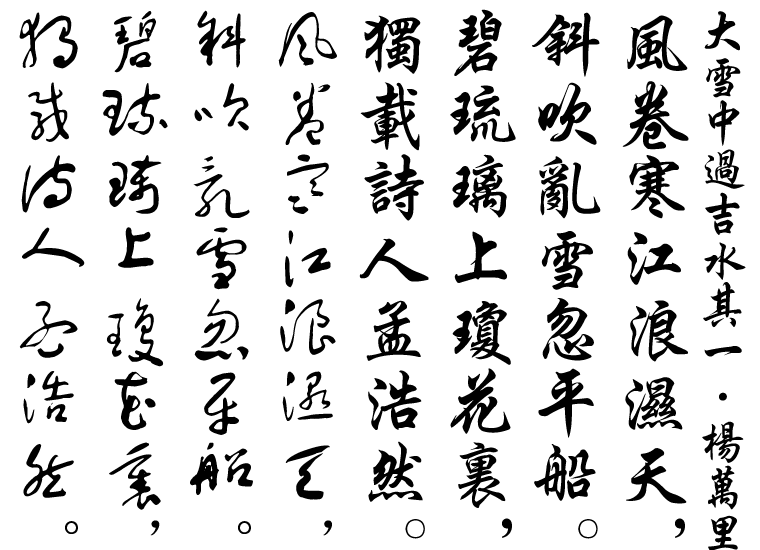 大雪中過吉水其一·楊萬里
風卷寒江浪濕天，
斜吹亂雪忽平船。
碧琉璃上瓊花裏，
獨載詩人孟浩然。
風卷寒江浪濕天，
斜吹亂雪忽平船。
碧琉璃上瓊花裏，
獨載詩人孟浩然。